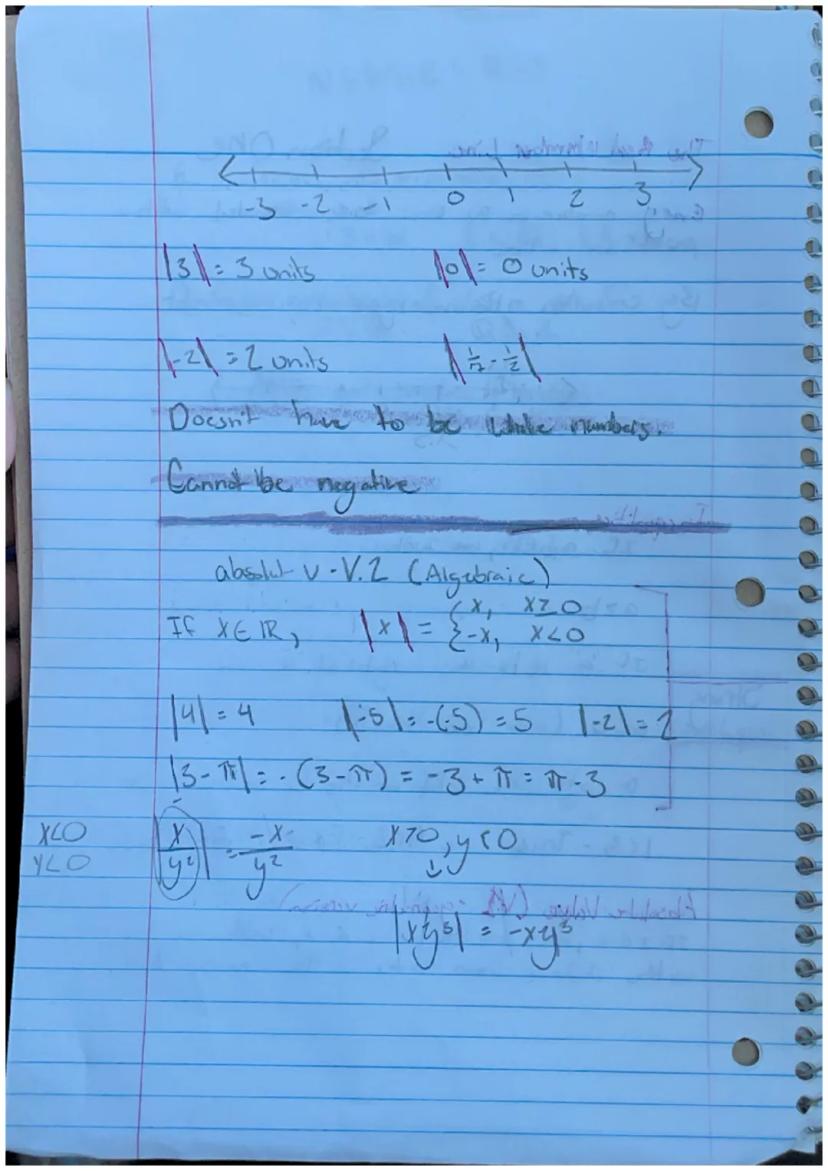 -3 -2 -1 0 1 2 3
|3| = 3 units |0| = 0 units
|-2| = 2 units
Doesn't have to be whole numbers.
Cannot be negative
absolut v - V.2 (Algebraic)
If x ∈ ℝ, |x| = { x, x ≥ 0
{ -x, x < 0
|4| = 4 |-5| = -(-5) = 5 |-2| = 2
|3 - π| = - (3 - π) = -3 + π = π - 3
x<0 |x/y²| = -x/y² x>0, y<0
y<0
↓
|xy⁵| = -xy⁵